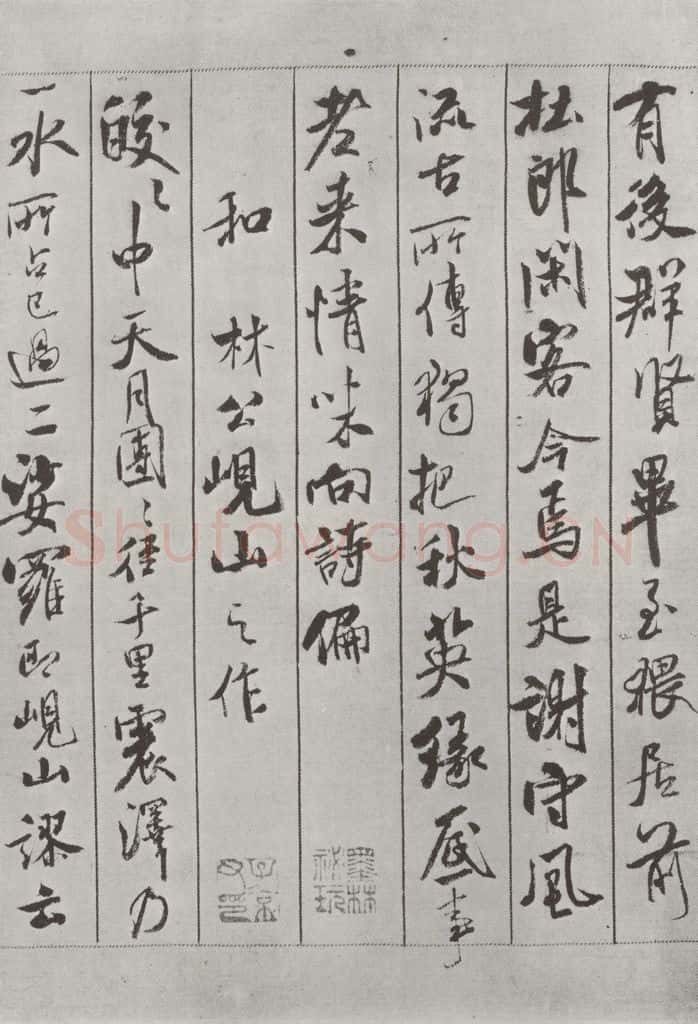 有後群賢畢至猥居前
杜郎閑客今焉是謝守風
流古所傳獨把秋英緣底事
老来情味向詩偏
和林公峴山之作
皎〻中天月團〻徑千里震澤乃
一水所占已過二娑羅即峴山謬云
墨林祕玩
Shufawang.CN